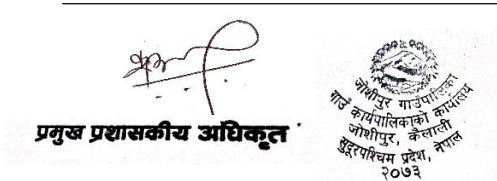 प्रमुख प्रशासकीय अधिकृत
जोशीपुर गाउँपालिका
गाउँ कार्यपालिकाको कार्यालय
जोशीपुर, कैलाली
सुदूरपश्चिम प्रदेश, नेपाल
२०७३